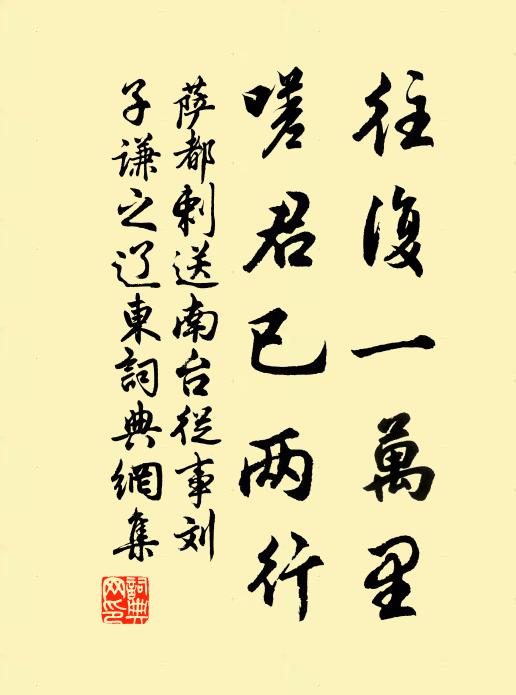 往復一萬里
嗟君已两行
萨都剌送南台從事刘
子谦之辽東詞典網集
詞典
网印